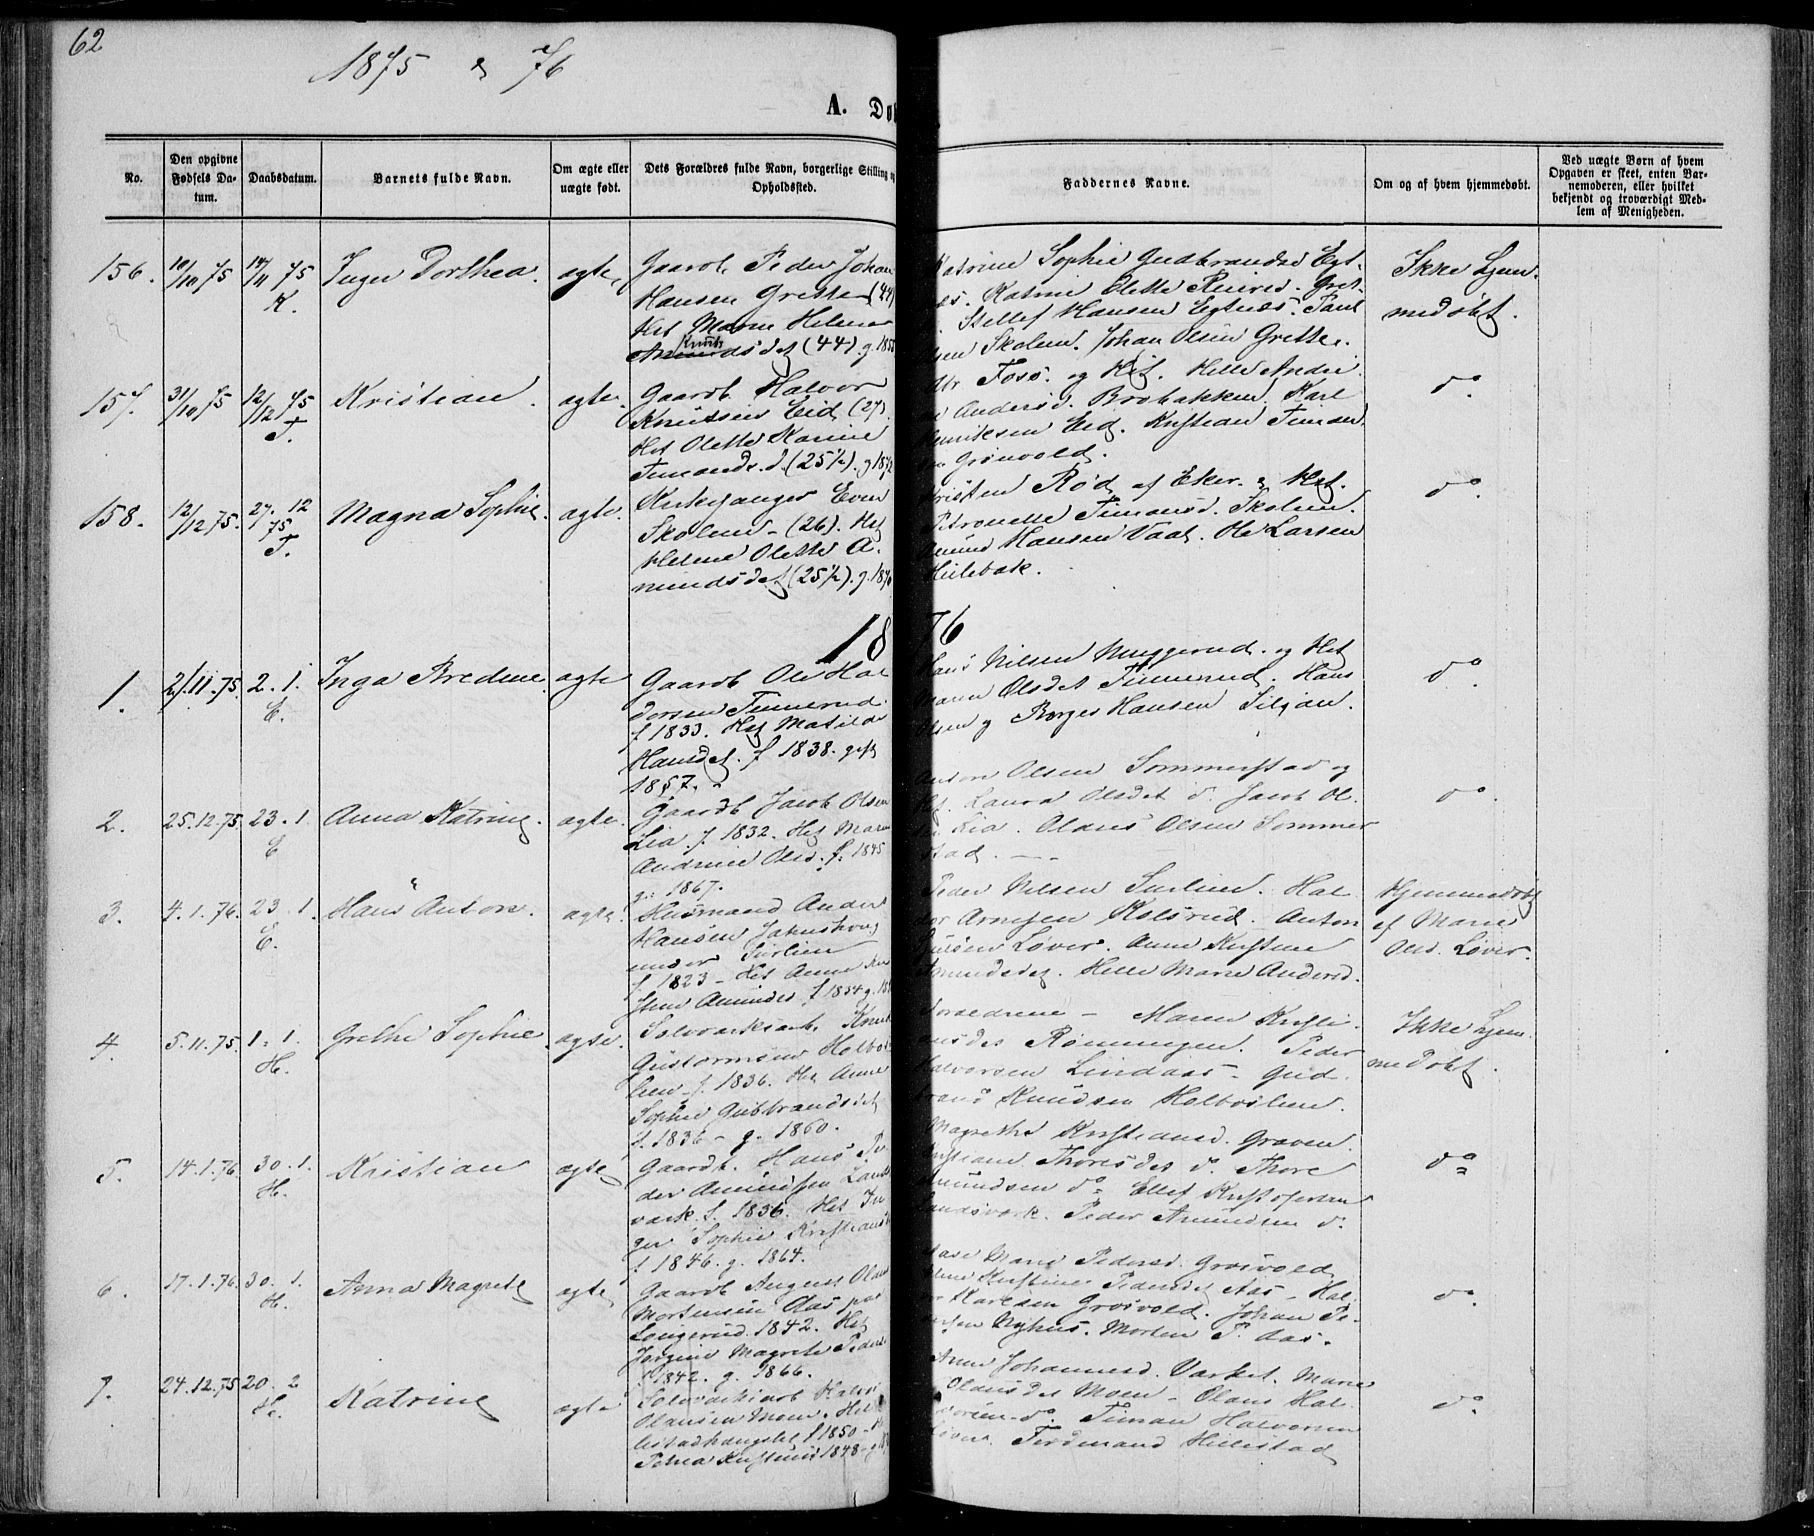 62
1875 & 76
A. Dø
No.
Den opgivne
Fødsels Da-
tum.
Daabsdatum.
Barnets fulde Navn.
Om ægte eller
uægte født.
Dets Forældres fulde Navn, borgerlige Stilling og
Opholdssted.
Faddernes Navne.
Om og af hvem hjemmedøbt.
Ved uægte Børn af hvem
Opgaven er skeet, enten Bar-
nemoderen, eller hvilket
bekjendt og troværdigt Med-
lem af Menigheden.
156.
10/10 75
14/11 75
K.
Inger Dorthea.
ægte
Gaardb. Peder Johan
Hansen Grette (44)
Het Maren Helene
Knuts
Amundsdet (44) g. 185
Katrine Sophie Gudbrandsd Egt-
es. Katrine Olette Reiersd. Gret-
Stellef Hansen Egtnes. Paul
sen Skolem. Johan Olsen Grette.
Ikke hjem-
medøbt.
157.
31/10 75
12/12 75
T.
Kristian.
ægte.
Gaardb Halvor
Knutsen Eid (27).
Het Olette Karine
Timandsd. (25½). g 1872
dbr Foss. og Het. Helle Andri-
Andersd. Brobakken. Karl
Henriksen Eid. Kristian Timan-
Grønvold.
do.
158.
12/12 75.
27. 12
75
T.
Magna Sophie.
ægte.
Kirkesanger Even
Skolem - (26). Het
Helene Olette A-
mundsdet (25½). g. 1870
risten Rød af Eker. & Het.
Petronelle Timansd. Skolem.
Amund Hansen Vaal. Ole Larsen
Hillebæk.
do.
1876
1.
2/11. 75.
2. 1.
E.
Inga Bredine.
ægte
Gaardb Ole Hal-
dorsen Tinnerud.
f 1833. Het Matilde
Hansdet. f 1838. gift
1857.
Hans Nilsen Muggerud. og Het
Maren Olsdet Tinnerud. Hans
Olsen og Børges Hansen Siljan.
do.
2.
25. 12. 75.
23. 1.
E
Anna Katrine.
ægte.
Gaardb Jacob Olsen
Lia. f. 1832. Het Maren
Andrine Olsd. f. 1845
g. 1867.
Anton Olsen Sommerstad og
Het. Laura Olsdet do. Jacob Ol-
Lia. Olaves Olsen Sommer
stad.
do.
3.
4. 1. 76.
23. 1.
E.
Hans Anton.
ægte.
Husmand Anders
Hansen Jahnshoug
under Surlien
f 1823 - Het Anne Kri
stine Amundsd. f 1834 g. 18
Peder Nilsen Surlien. Hal-
dor Arnesen Kolsrud. Anton
Løver. Anne Kristine
Amundsdet. Helle Marie Andersd.
Hjemmedøbt
af Marie
Olsd. Løver.
4.
5. 11. 75.
1. 1.
H.
Grethe Sophie
ægte.
Sølvværksarb. Knut
Guttormsen Holbøs
lien. f. 1836. Het Anne
Sophie Gulbrandsdet
f. 1836 - g. 1860.
Forældrene - Maren Kristi-
ansdet Rønningen. Peder
Halvorsen Lindaas - Gud-
brand Knudsen Holbøslien.
Ikke hjem-
medøbt.
5.
14. 1. 76.
30. 1.
H.
Kristian
ægte
Gaardb. Hans Pe-
der Amundsen Lands-
værk. f. 1836. Het In-
ger Sophie Kristiansd
f 1846. g. 1864.
Magrethe Kristiansd. Graven.
Kristiane Thoresdet do. Thore
Amundsen do Ellef Kristofersen
Landsværk. Peder Amundsen do.
do
6.
17. 1. 76.
30. 1.
H.
Anna Magrete
ægte
Gaardb August Olaus
Mortensen Aas paa
Langerud. 1842. Het
Jørgine Magrete Peders
f 1842. g. 1866.
Maren Pedersd. Grosvold
Kristine Pedersdet Aas - Hal-
Karlsen Grosvold. Johan Pe-
dersen Nyhus. Morten P. Aas.
do.
7.
24. 12. 75
20. 2
H.
Katrine
ægte
Sølvværksarb Halvor
Olausen Moen. Hel-
lestadhaugslet f 1850 -
Petrea Kristine 1848 - g.
Anne Johannesd. Værket. Maren
Olausdet Moen - Olaus Hal-
vorsen do. Timan Halvorsen
Løver. Ferdinand Hillestad
do.